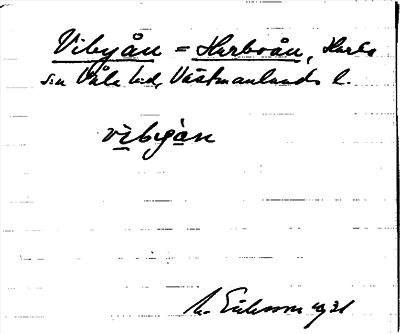 Vibyån = Harboån, Harbo
sn Våla hd, Västmanlands l.
vibyån
M. Eriksson 1931